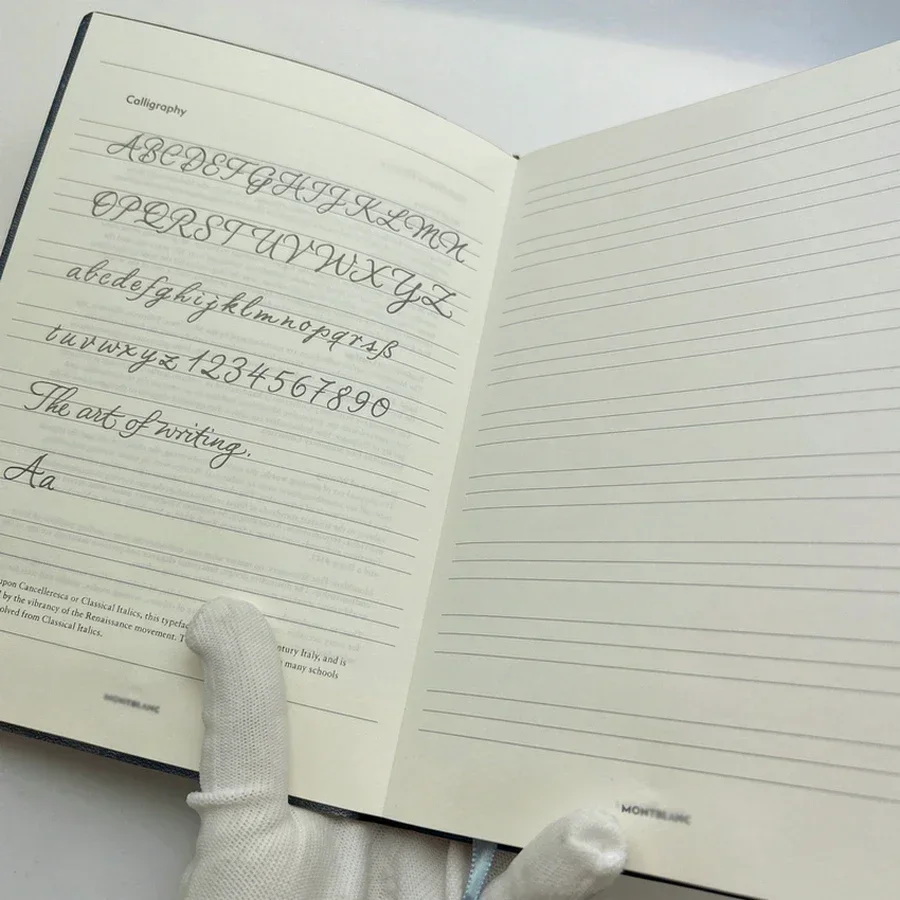 Calligraphy
ABCDEFGHIJKLMN
OPQRSTUVWXYZ
abcdefghijklmnopqrsß
tuvwxyz 1234567890
The art of writing.
Aa
upon Cancelleresca or Classical Italics, this
by the vibrancy of the Renaissance movement. Italy, and is
from Classical Italics. many schools
MONTBLANC
MONTBLANC